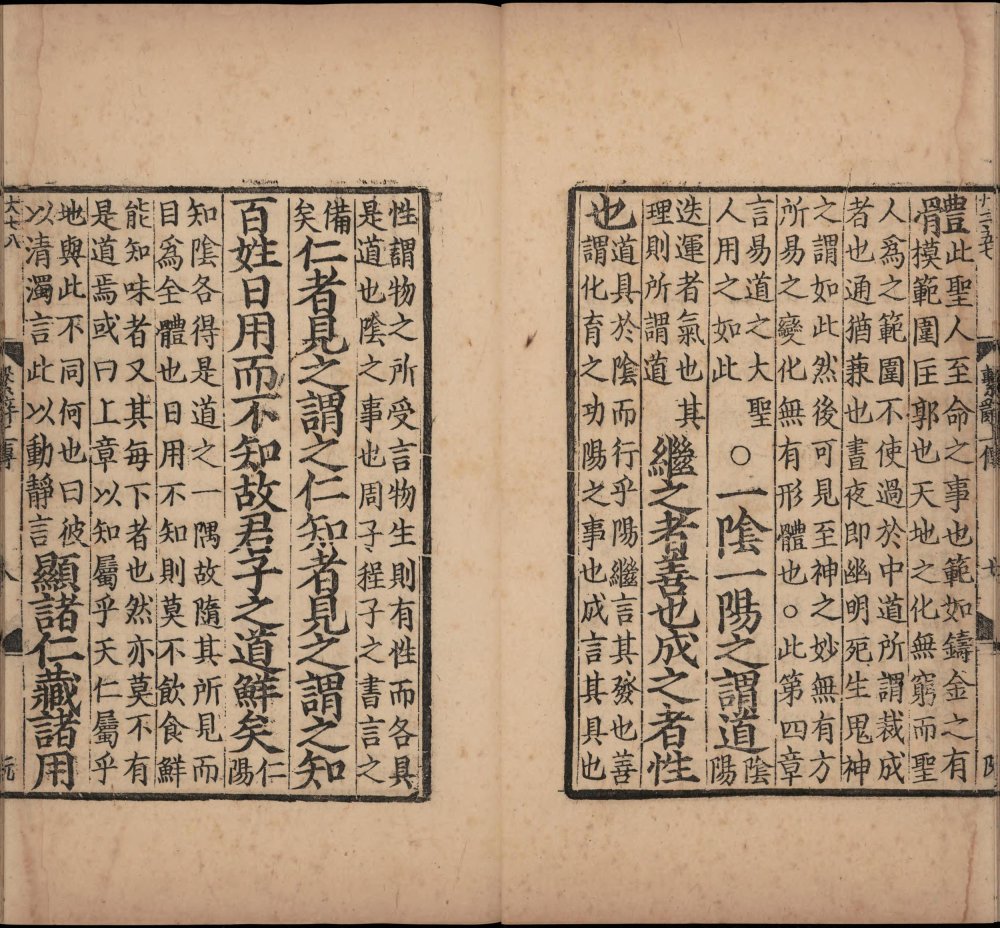 體此聖人至命之事也範如鑄金之有
模範圍匡郭也天地之化無窮而聖
人爲之範圍不使過於中道所謂裁成
者也通猶兼也晝夜即幽明死生鬼神
之謂如此然後可見至神之妙無有方
所易之變化無有形體也○此第四章
言易道之大聖
人用之如此
○一陰一陽之謂道
陰
陽
迭運者氣也其
理則所謂道
繼之者善也成之者性
也
道具於陰而行乎陽繼言其發也善
謂化育之功陽之事也成言其具也
性謂物之所受言物生則有性而各具
是道也陰之事也周子程子之書言之
備
矣
仁者見之謂之仁知者見之謂之知
百姓日用而不知故君子之道鮮矣
仁
陽
知陰各得是道之一隅故隨其所見而
目爲全體也日用不知則莫不飲食鮮
能知味者又其每下者也然亦莫不有
是道焉或曰上章以知屬乎天仁屬乎
地與此不同何也曰彼
以清濁言此以動靜言
顯諸仁藏諸用